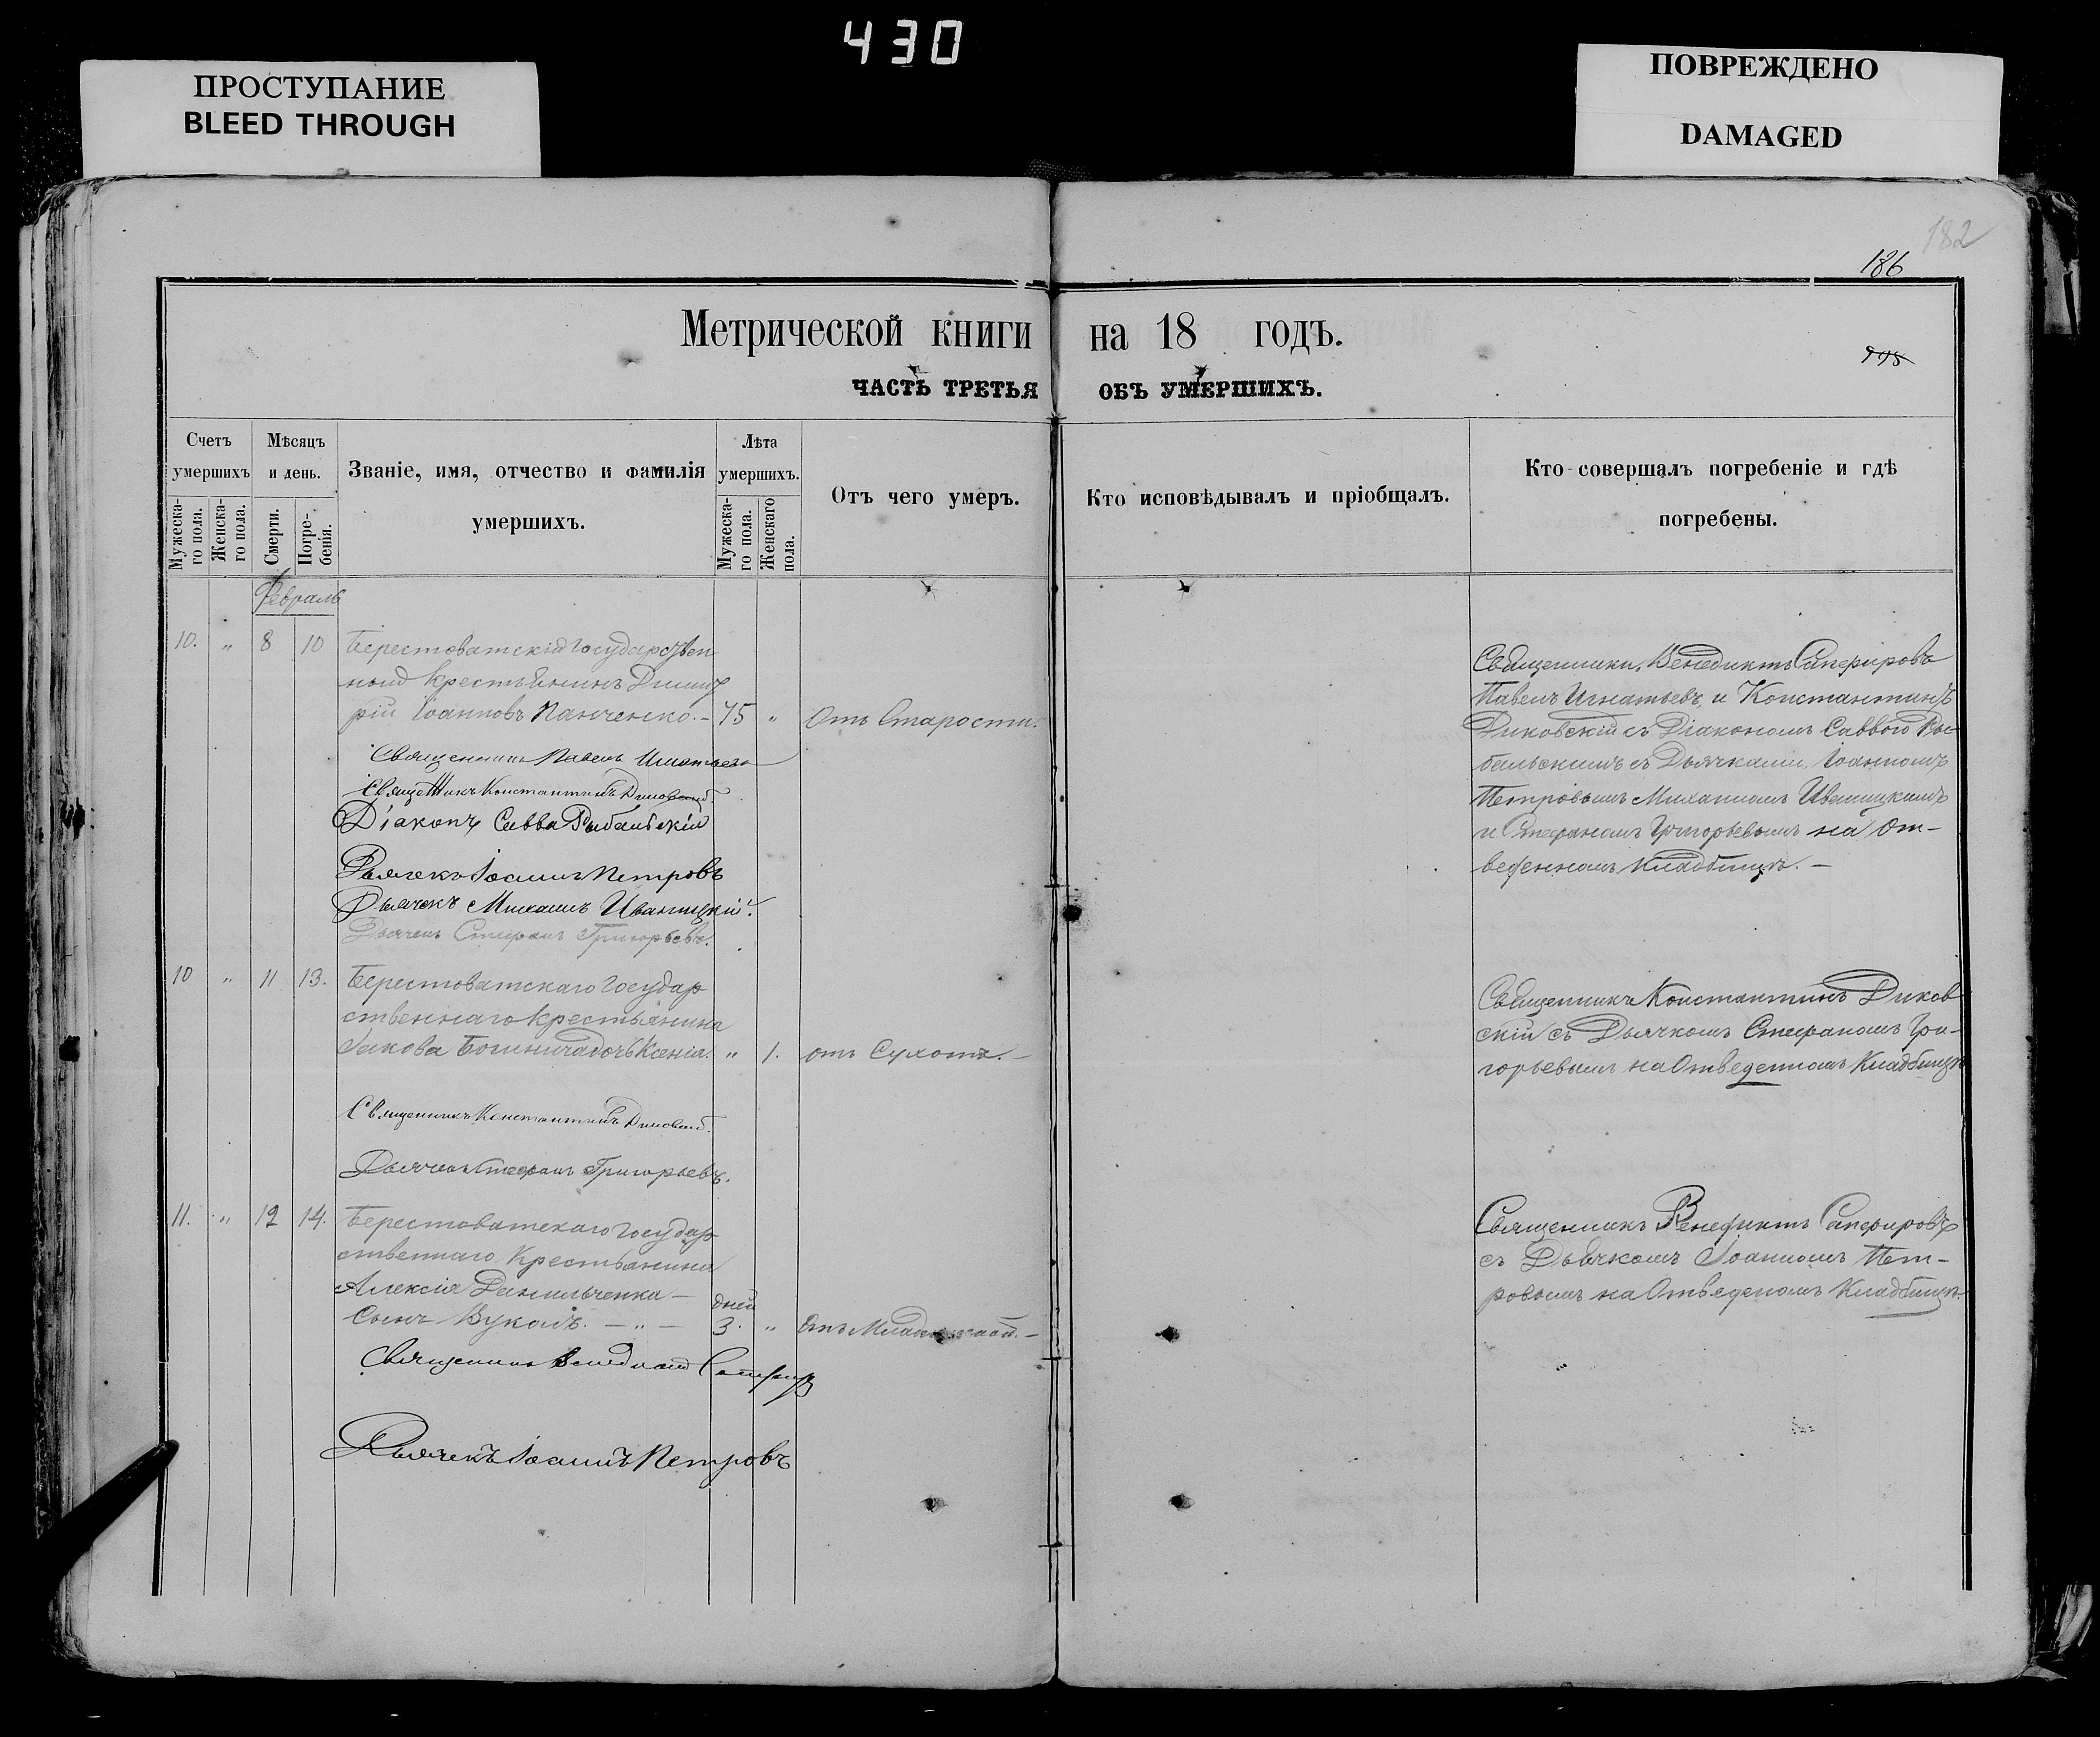 430
ПРОСТУПАНИЕ
BLEED THROUGH
ПОВРЕЖДЕНО
DAMAGED
182
186
Метрической книги на 18 годъ.
ЧАСТЬ ТРЕТЬЯ ОБЪ УМЕРШИХЪ.
Счетъ умершихъ
Мужеска-го пола.
Женска-го пола.
Мѣсяцъ и день.
Смерти.
Погре-бенія.
Званіе, имя, отчество и фамилія
умершихъ.
Лѣта умершихъ.
Мужеска-го пола.
Женскаго пола.
Отъ чего умеръ.
Кто исповѣдывалъ и пріобщалъ.
Кто совершалъ погребеніе и гдѣ
погребены.
Февраль
10. " 8 10 Берестоватскій государствен
ной крестьянинъ Димит
рій Іоанновъ Панченко. – 75 " Отъ Старости.
Священникъ Павелъ Игнатьевъ
Священникъ Константинъ Диковскій.
Діаконъ Савва Рыбальскій
Дьячекъ Іоаннъ Петровъ
Дьячекъ Михаилъ Иваницкій.
Дьячекъ Стефанъ Григорьевъ.
Священники, Венедиктъ Сапфировъ
Павелъ Игнатьевъ, и Константинъ
Диковскій съ Діакономъ Саввою Ры-
бальскимъ съ Дьячками, Іоанномъ
Петровымъ Михаиломъ Иваницкимъ
и Стефаномъ Григорьевымъ на От-
веденномъ Кладбищѣ. –
10 " 11 13. Берестоватскаго государ
ственнаго крестьянина
Іакова дочь Ксенія. " 1. отъ Сухотъ. –
Священникъ Константинъ Диковскій.
Дьячекъ Стефанъ Григорьевъ.
Священникъ Константинъ Диков
скій съ Дьячкомъ Стефаномъ Гри-
горьевымъ на Отведенномъ Кладбищѣ
11. " 12 14. Берестоватскаго государ
ственнаго Крестьянина
Алексія Данильченка –
Сынъ Вуколъ. – " – дней 3. " Отъ Младенческой. –
Священникъ Венедиктъ Сапфировъ
Дьячекъ Іоаннъ Петровъ
Священникъ Венедиктъ Сапфировъ
съ Дьячкомъ Іоанномъ Пет-
ровымъ на Отведеномъ Кладбищѣ.